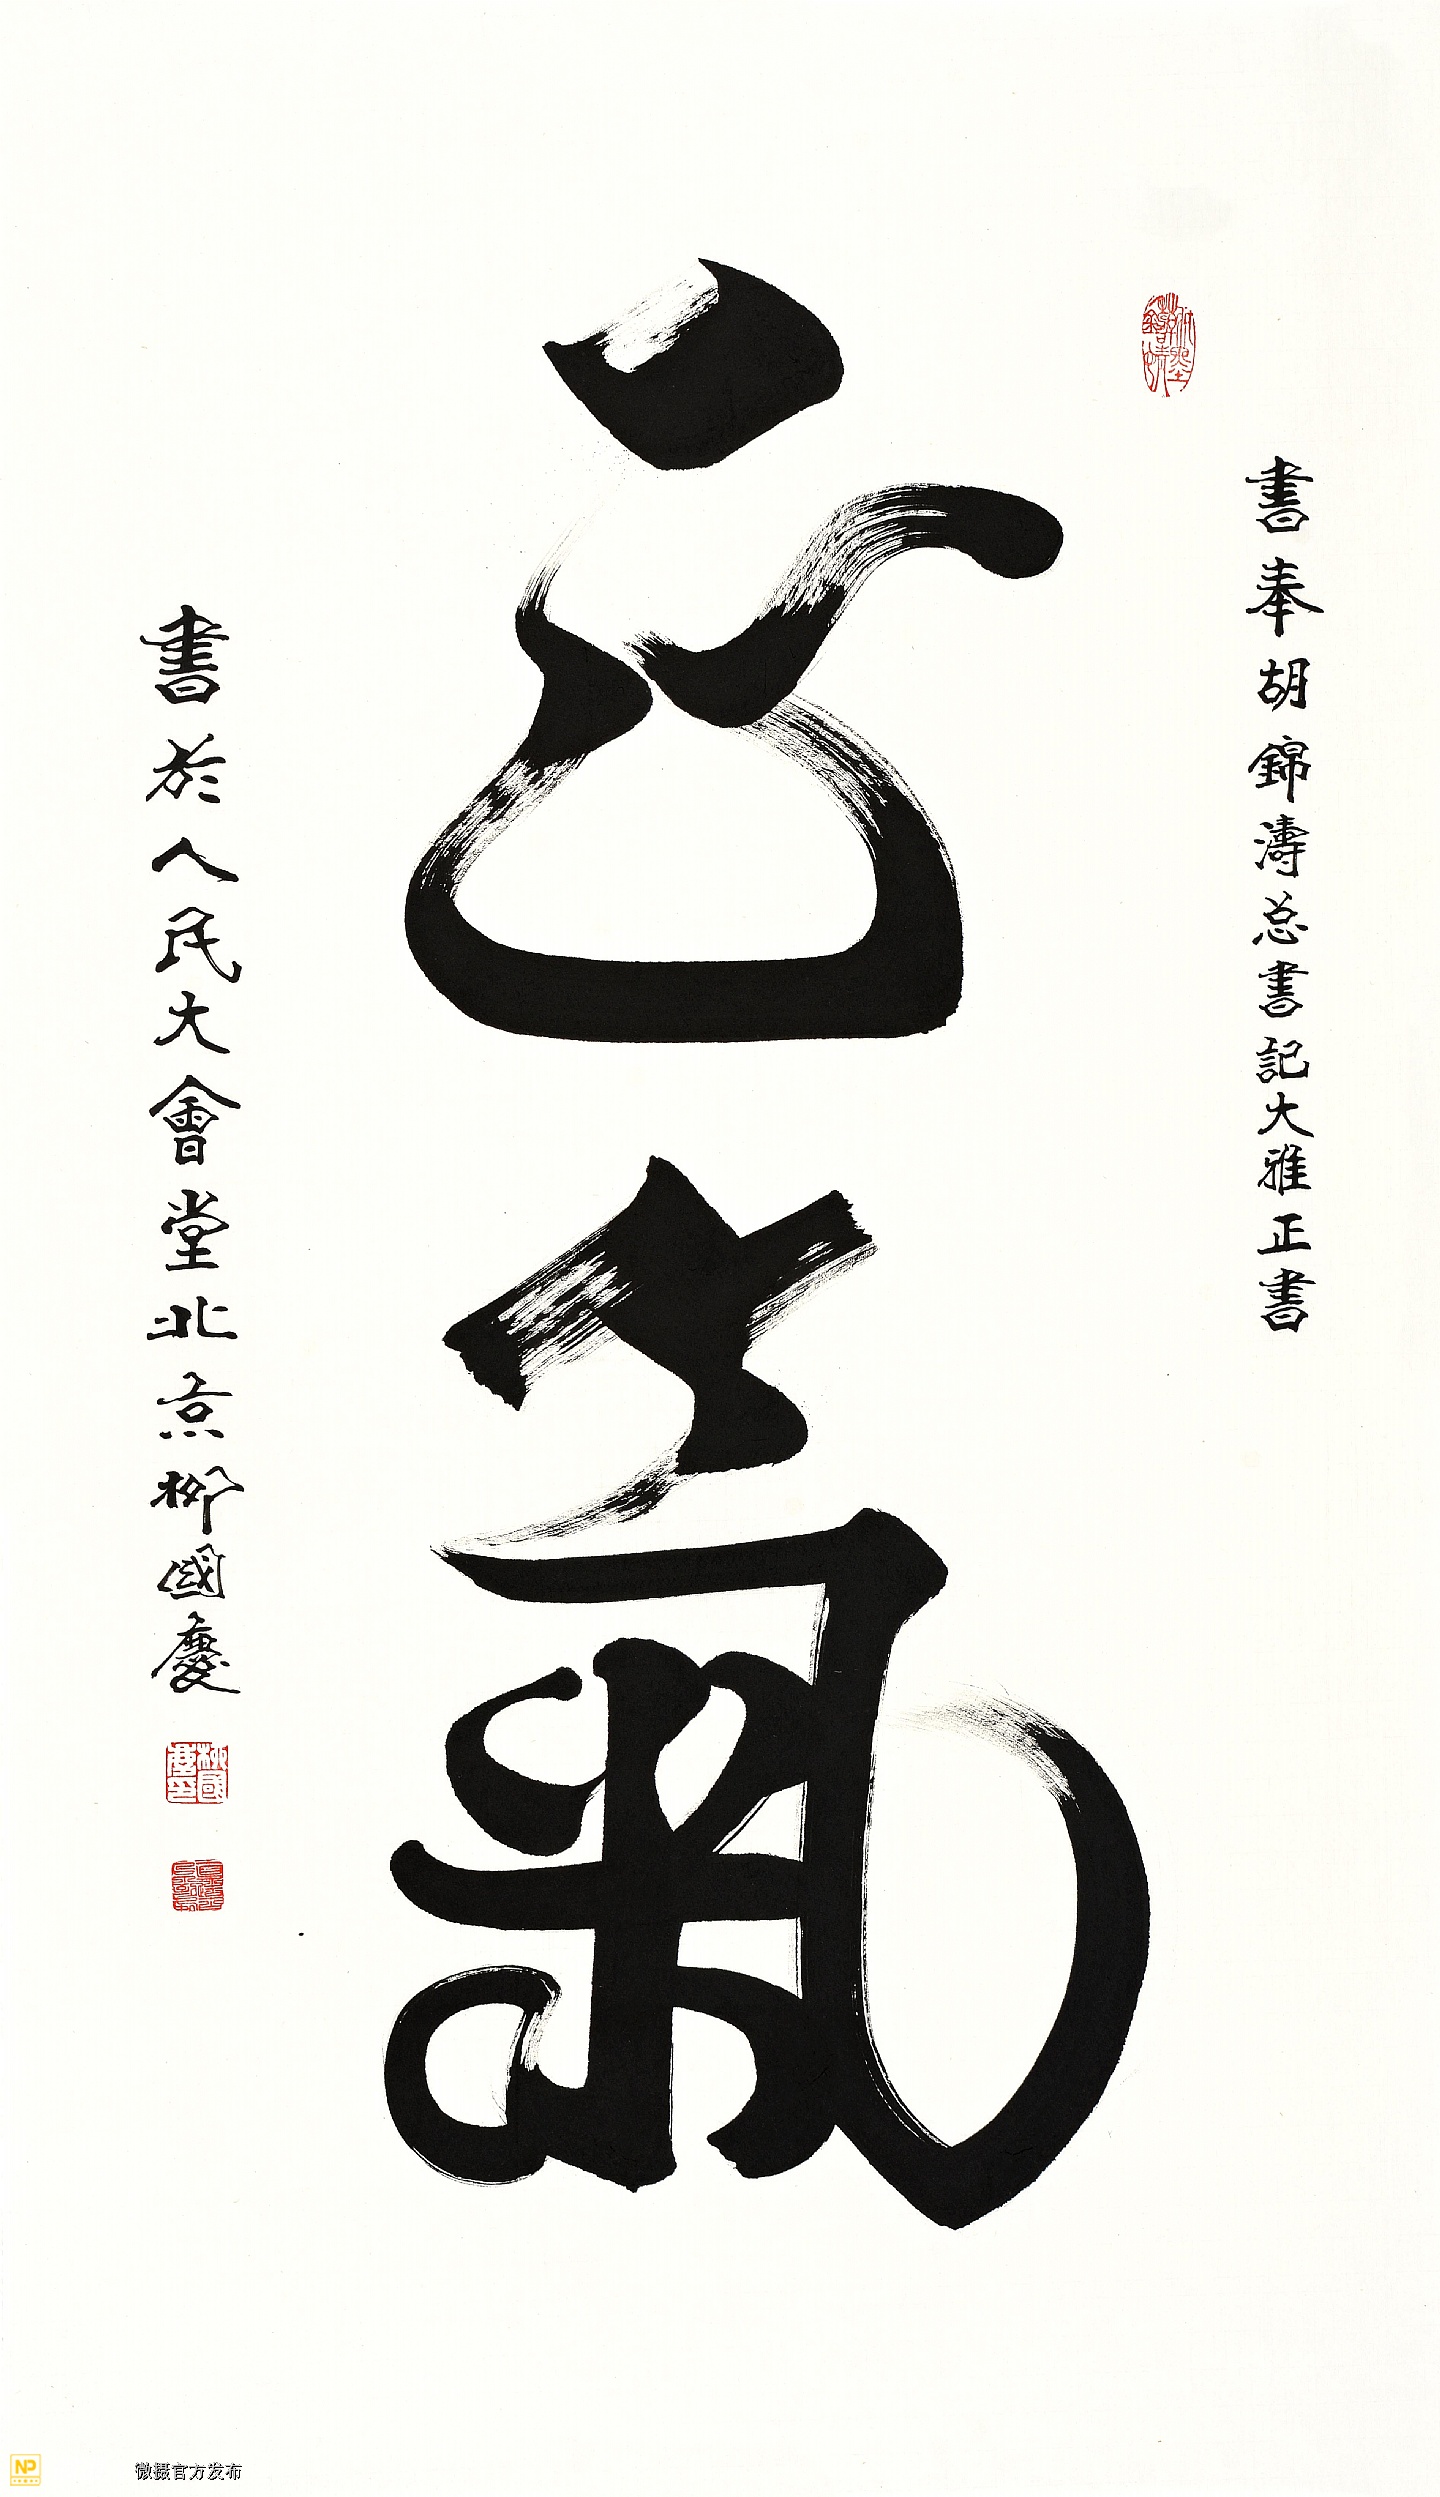 正氣
書奉胡錦濤总書記大雅正書
書於人民大會堂北京柳國慶
NP
微摄官方发布